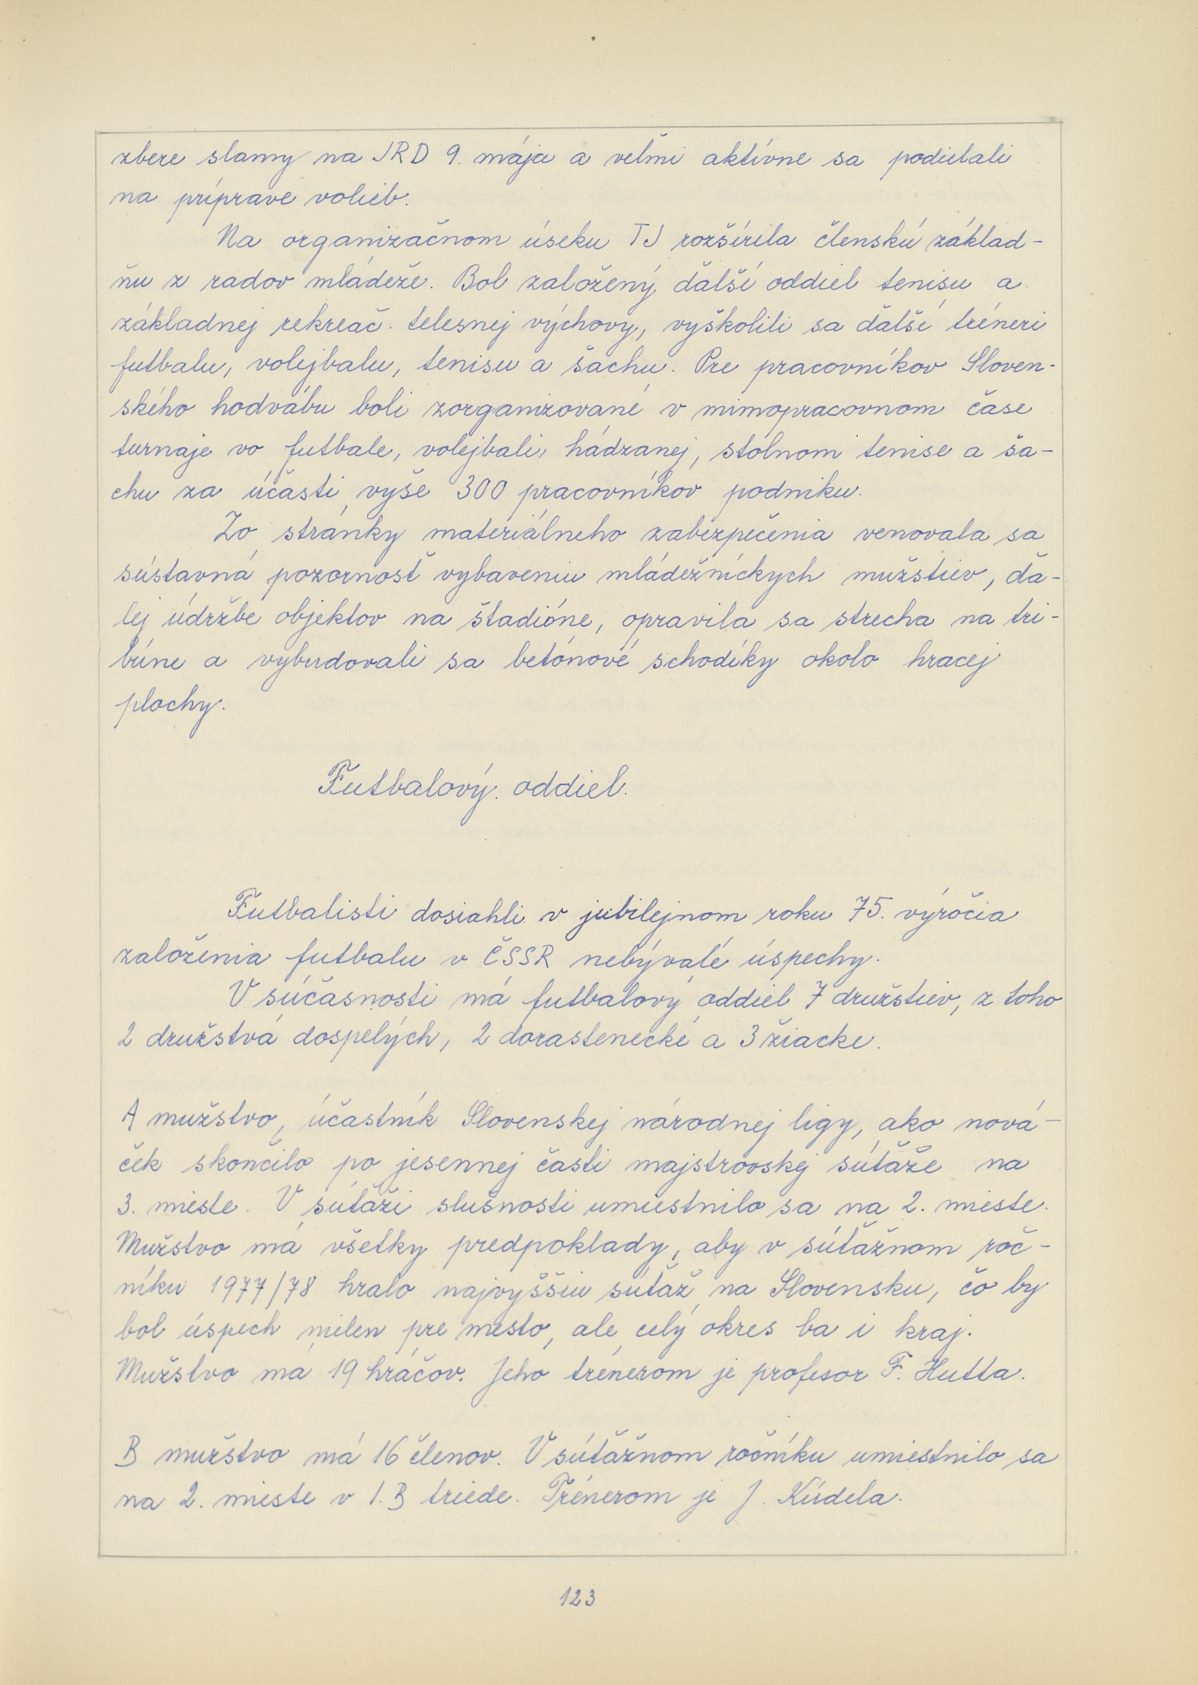 zbere slamy na JRD 9. mája a veľmi aktívne sa podielali
na príprave volieb.
Na organizačnom úseku TJ rozšírila členskú základ-
ňu z radov mládeže. Bol založený ďalší oddiel tenisu a
základnej rekreač. telesnej výchovy, vyškolili sa ďalší tréneri
futbalu, volejbalu, tenisu a šachu. Pre pracovníkov Sloven-
ského hodvábu boli zorganizované v mimopracovnom čase
turnaje vo futbale, volejbali, hádzanej, stolnom tenise a ša-
chu za účasti vyše 300 pracovníkov podniku.
Zo stránky materiálneho zabezpečenia venovala sa
sústavná pozornosť vybaveniu mládežníckych mužstiev, ďa-
lej údržbe objektov na štadióne, opravila sa strecha na tri-
búne a vybudovali sa betónové schodíky okolo hracej
plochy.
Futbalový oddiel.
Futbalisti dosiahli v jubilejnom roku 75. výročia
založenia futbalu v ČSSR nebývalé úspechy.
V súčasnosti má futbalový oddiel 7 družstiev, z toho
2 družstvá dospelých, 2 dorastenecké a 3 žiacke.
A mužstvo, účastník Slovenskej národnej ligy, ako nová-
ček skončilo po jesennej časti majstrovskej súťaže na
3. mieste. V súťaži slušnosti umiestnilo sa na 2. mieste.
Mužstvo má všetky predpoklady, aby v súťažnom roč-
níku 1977/78 hralo najvyššiu súťaž na Slovensku, čo by
bol úspech nielen pre mesto, ale celý okres ba i kraj.
Mužstvo má 19 hráčov. Jeho trénerom je profesor F. Hutta.
B mužstvo má 16 členov. V súťažnom ročníku umiestnilo sa
na 2. mieste v I. B triede. Trénerom je J. Kúdela.
123